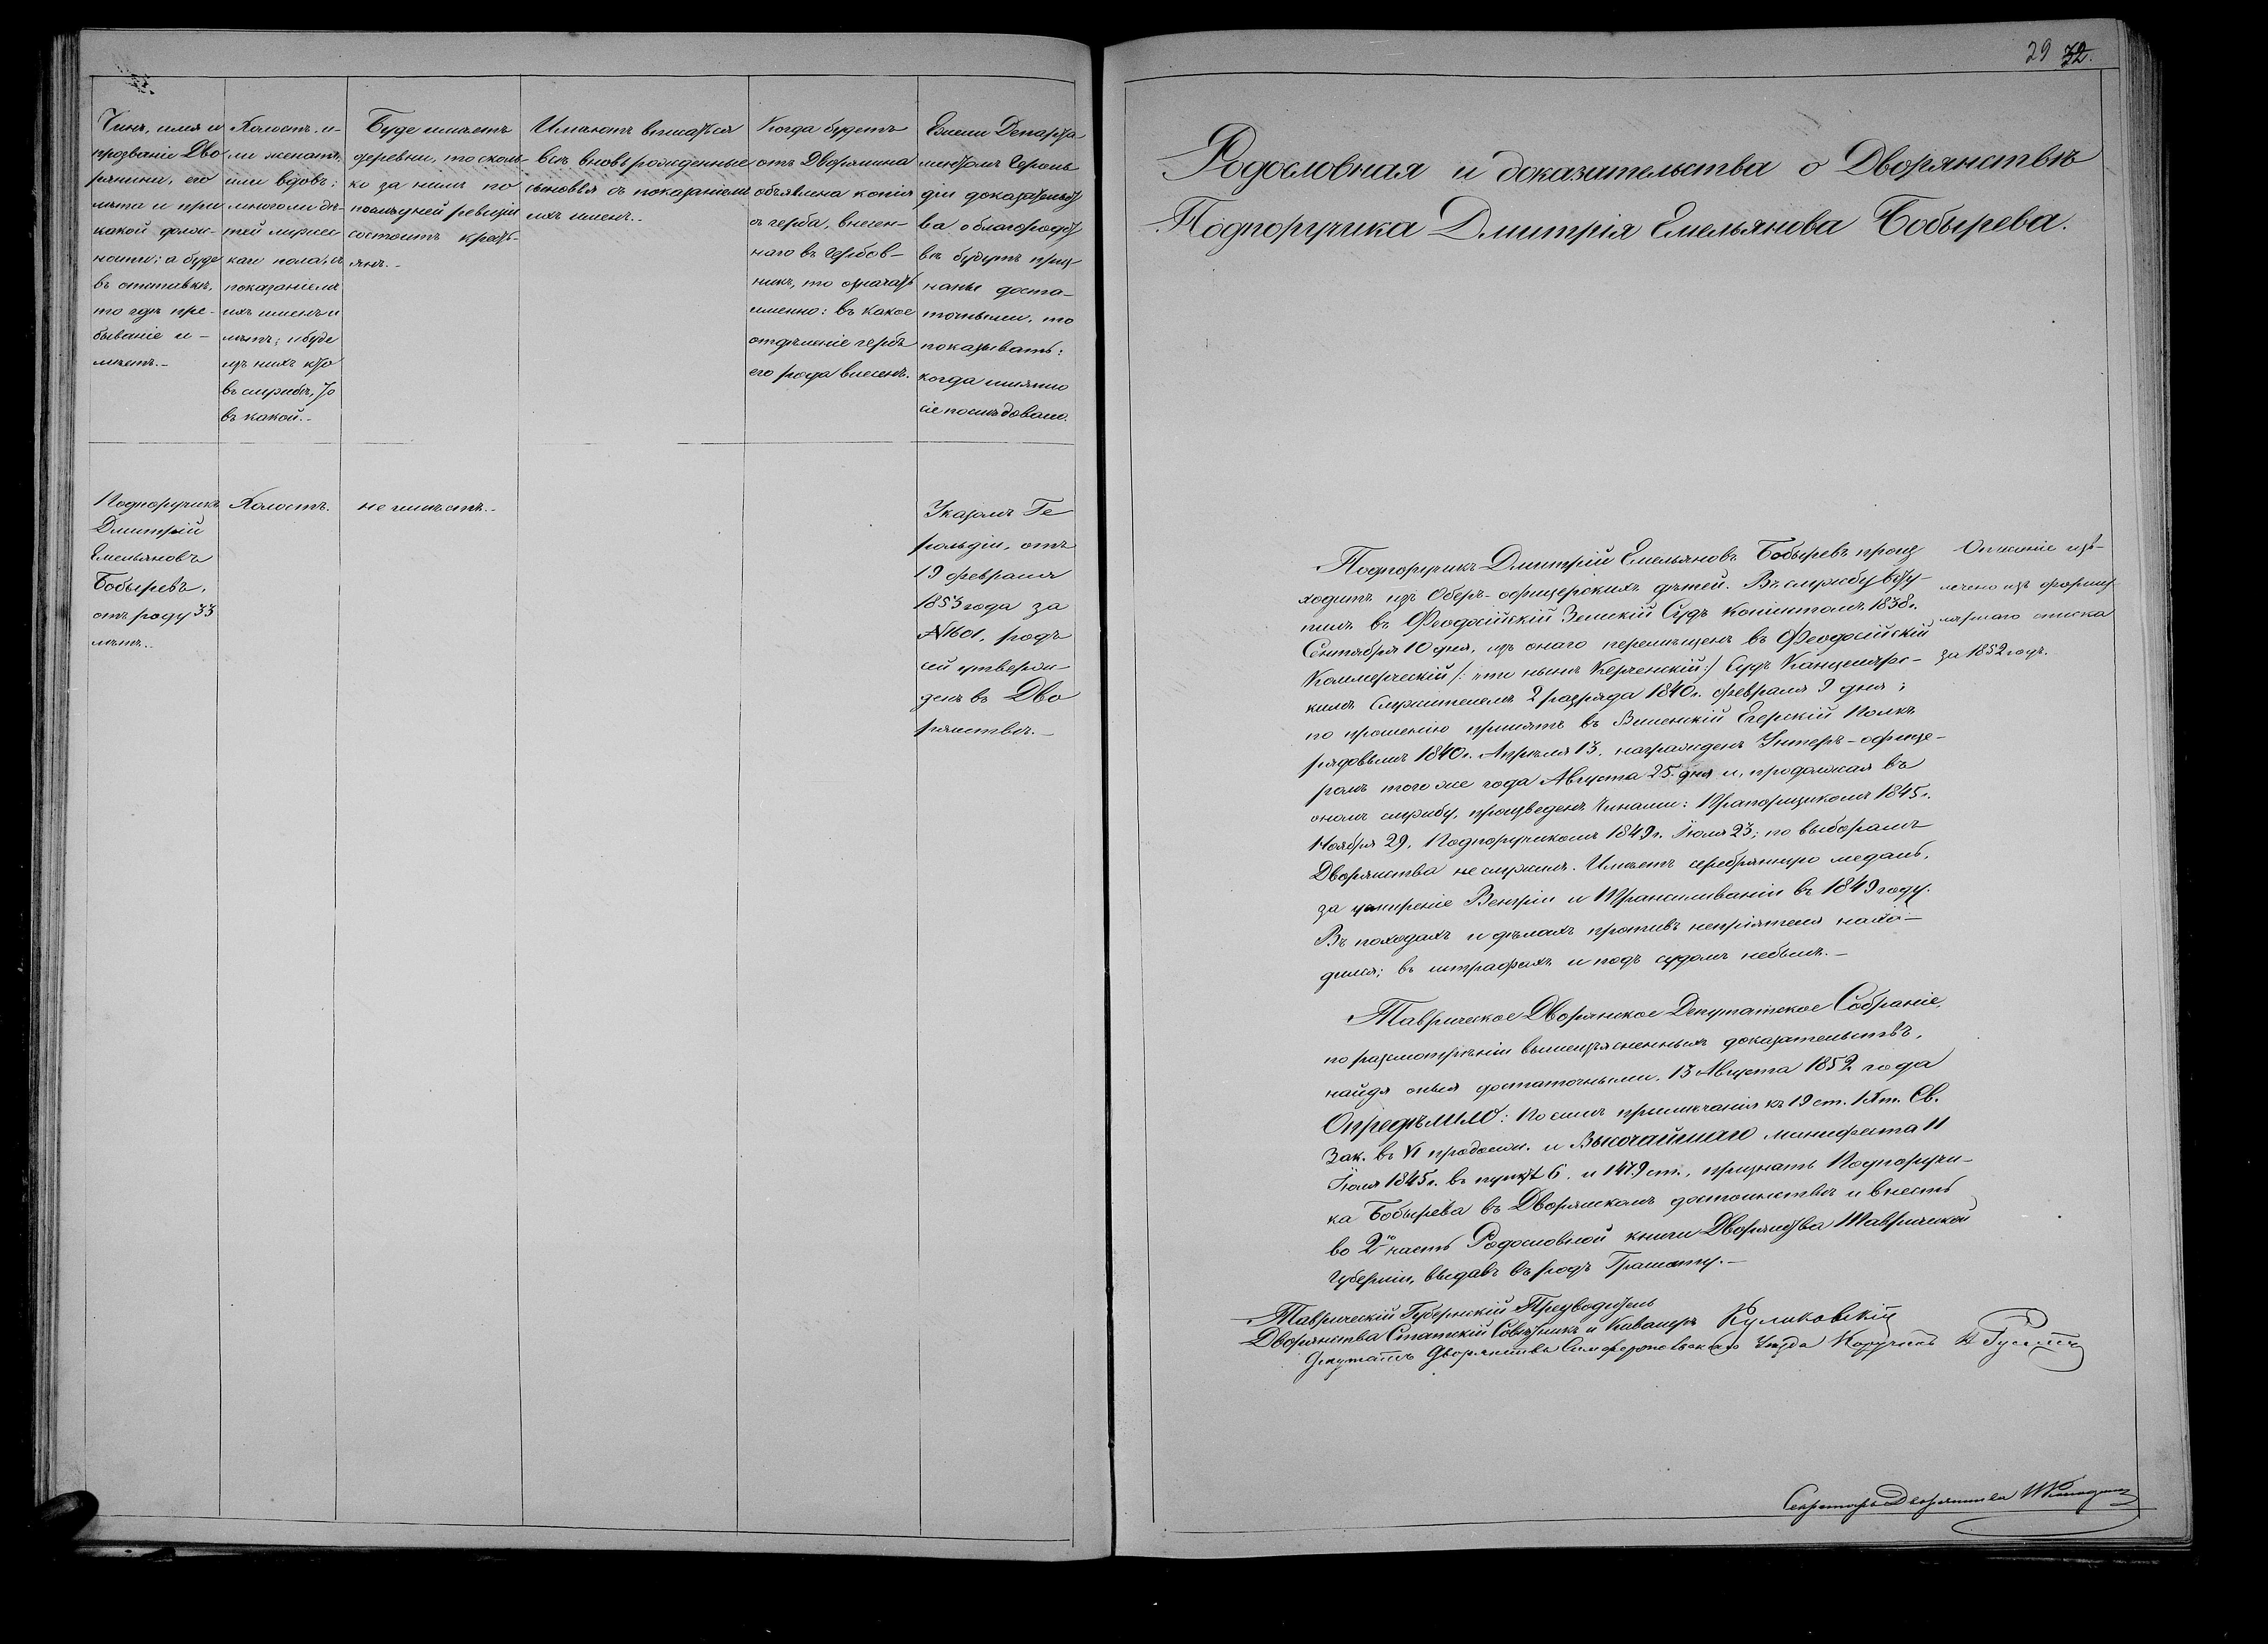 Чинъ, имя и
прозваніе Дво
рянина, его
лѣта и при
какой долж-
ности; а буде
въ отставкѣ,
то гдѣ пре-
бываніе и-
мѣетъ.-
Холостъ, и-
ли женатъ,
или вдовъ;
многоли дѣ-
тей мужес
каго пола, съ
показаніемъ
ихъ именъ и
лѣтъ; и буде
изъ нихъ кто
въ службѣ, то
въ какой.-
Буде имѣетъ
деревни, то сколь-
ко за нимъ по
послѣдней ревизіи
состоитъ кресть-
янъ.-
Имѣютъ вписаться
всѣ вновь рожденные
сыновья съ показаніемъ
ихъ именъ.-
Когда будетъ
отъ Дворянина
объявлена копія
съ герба, внесен-
наго въ гербов-
никъ, то означать
именно: въ какое
отдѣленіе гербъ
его рода внесенъ.
Ежели Департа
ментомъ Героль
діи доказательст
ва о благородст
вѣ будутъ приз
наны доста-
точными, то
показывать:
когда именно
сіе послѣдовало.
Подпоручикъ
Дмитрій
Емельяновъ
Бобыревъ,
отъ роду 33
лѣтъ.-
Холостъ.
не имѣетъ.-
Указомъ Ге
рольдіи, отъ
19 февраля
1853 года за
№1601, родъ
сей утверж-
денъ въ Дво
рянствѣ.-
29 32.
Родословная и доказательства о Дворянствѣ
Подпоручика Дмитрія Емельянова Бобырева.
Подпоручикъ Дмитрій Емельяновъ Бобыревъ произ
ходитъ изъ Оберъ-офицерскихъ дѣтей. Въ службу всту-
пилъ въ Феодосійскій Земскій Судъ Копіистомъ 1838г.
Сентября 10 дня, изъ онаго перемѣщенъ въ Феодосійскій
Коммерческій /: что нынѣ Керченскій:/ Судъ Канцелярс-
кимъ Служителемъ 2 разряда 1840г. февраля 9 дня;
по прошенію принятъ въ Виленскій Егерскій Полкъ
рядовымъ 1840г. Апрѣля 13. награжденъ Унтеръ-офице-
ромъ того же года Августа 25. дня и, продолжая въ
ономъ службу, произведенъ Чинами: Прапорщикомъ 1845г.
Ноября 29, Подпоручикомъ 1849г. Іюля 23; по выборамъ
Дворянства не служилъ. Имѣетъ серебрянную медаль,
за усмиреніе Венгріи и Трансильваніи въ 1849 году.
Въ походахъ и дѣлахъ противъ непріятеля нахо-
дился; въ штрафахъ и подъ судомъ небылъ.-
Описаніе извл-
лечено изъ формул
лярнаго списка
за 1852 годъ.
Таврическое Дворянское Депутатское Собраніе,
по разсмотрѣніи вышеизъясненныхъ доказательствъ,
найдя оныя достаточными, 13 Августа 1852 года
Опредѣлило: По силѣ примѣчанія къ 19 ст. IX т. Св.
Зак. въ VI продолж. и Высочайшаго манифеста 11
Іюля 1845г. въ пунктѣ 6. и 1479 ст., признать Подпоручи-
ка Бобырева въ Дворянскомъ достоинствѣ и внесть
во 2ю часть Родословной книги Дворянства Таврической
Губерніи, выдавъ въ родъ Грамоту.-
Таврическій Губернскій Предводитель
Дворянства Статскій Совѣтникъ и Кавалеръ Куликовскій
Депутатъ Дворянства Симферопольскаго Уѣзда Поручикъ
Секретарь Дворянства